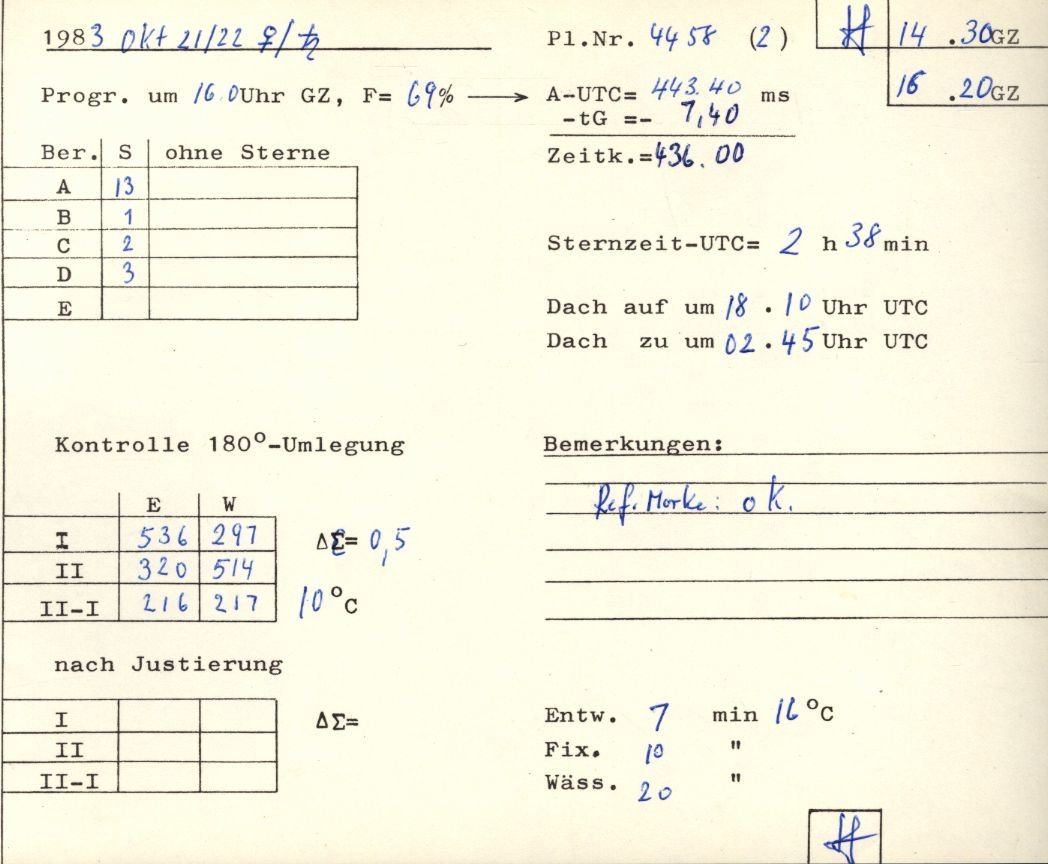 1983 Okt 21/22 ♀/♄
Pl.Nr. 4458 (2)
14 .30GZ
16 .20GZ
Progr. um 16.0Uhr GZ, F= 69% → A-UTC= 443.40 ms
-tG =- 7,40
Zeitk.=436.00
Ber. S ohne Sterne
A 13
B 1
C 2
D 3
E
Sternzeit-UTC= 2 h 38min
Dach auf um 18 . 10 Uhr UTC
Dach zu um 02 . 45 Uhr UTC
Kontrolle 180°-Umlegung
E W
I 536 297
II 320 514
II-I 216 217
ΔΣ= 0,5
10°C
Bemerkungen:
Ref. Marke: ok.
nach Justierung
I
II
II-I
ΔΣ=
Entw. 7 min 16°C
Fix. 10 "
Wäss. 20 "